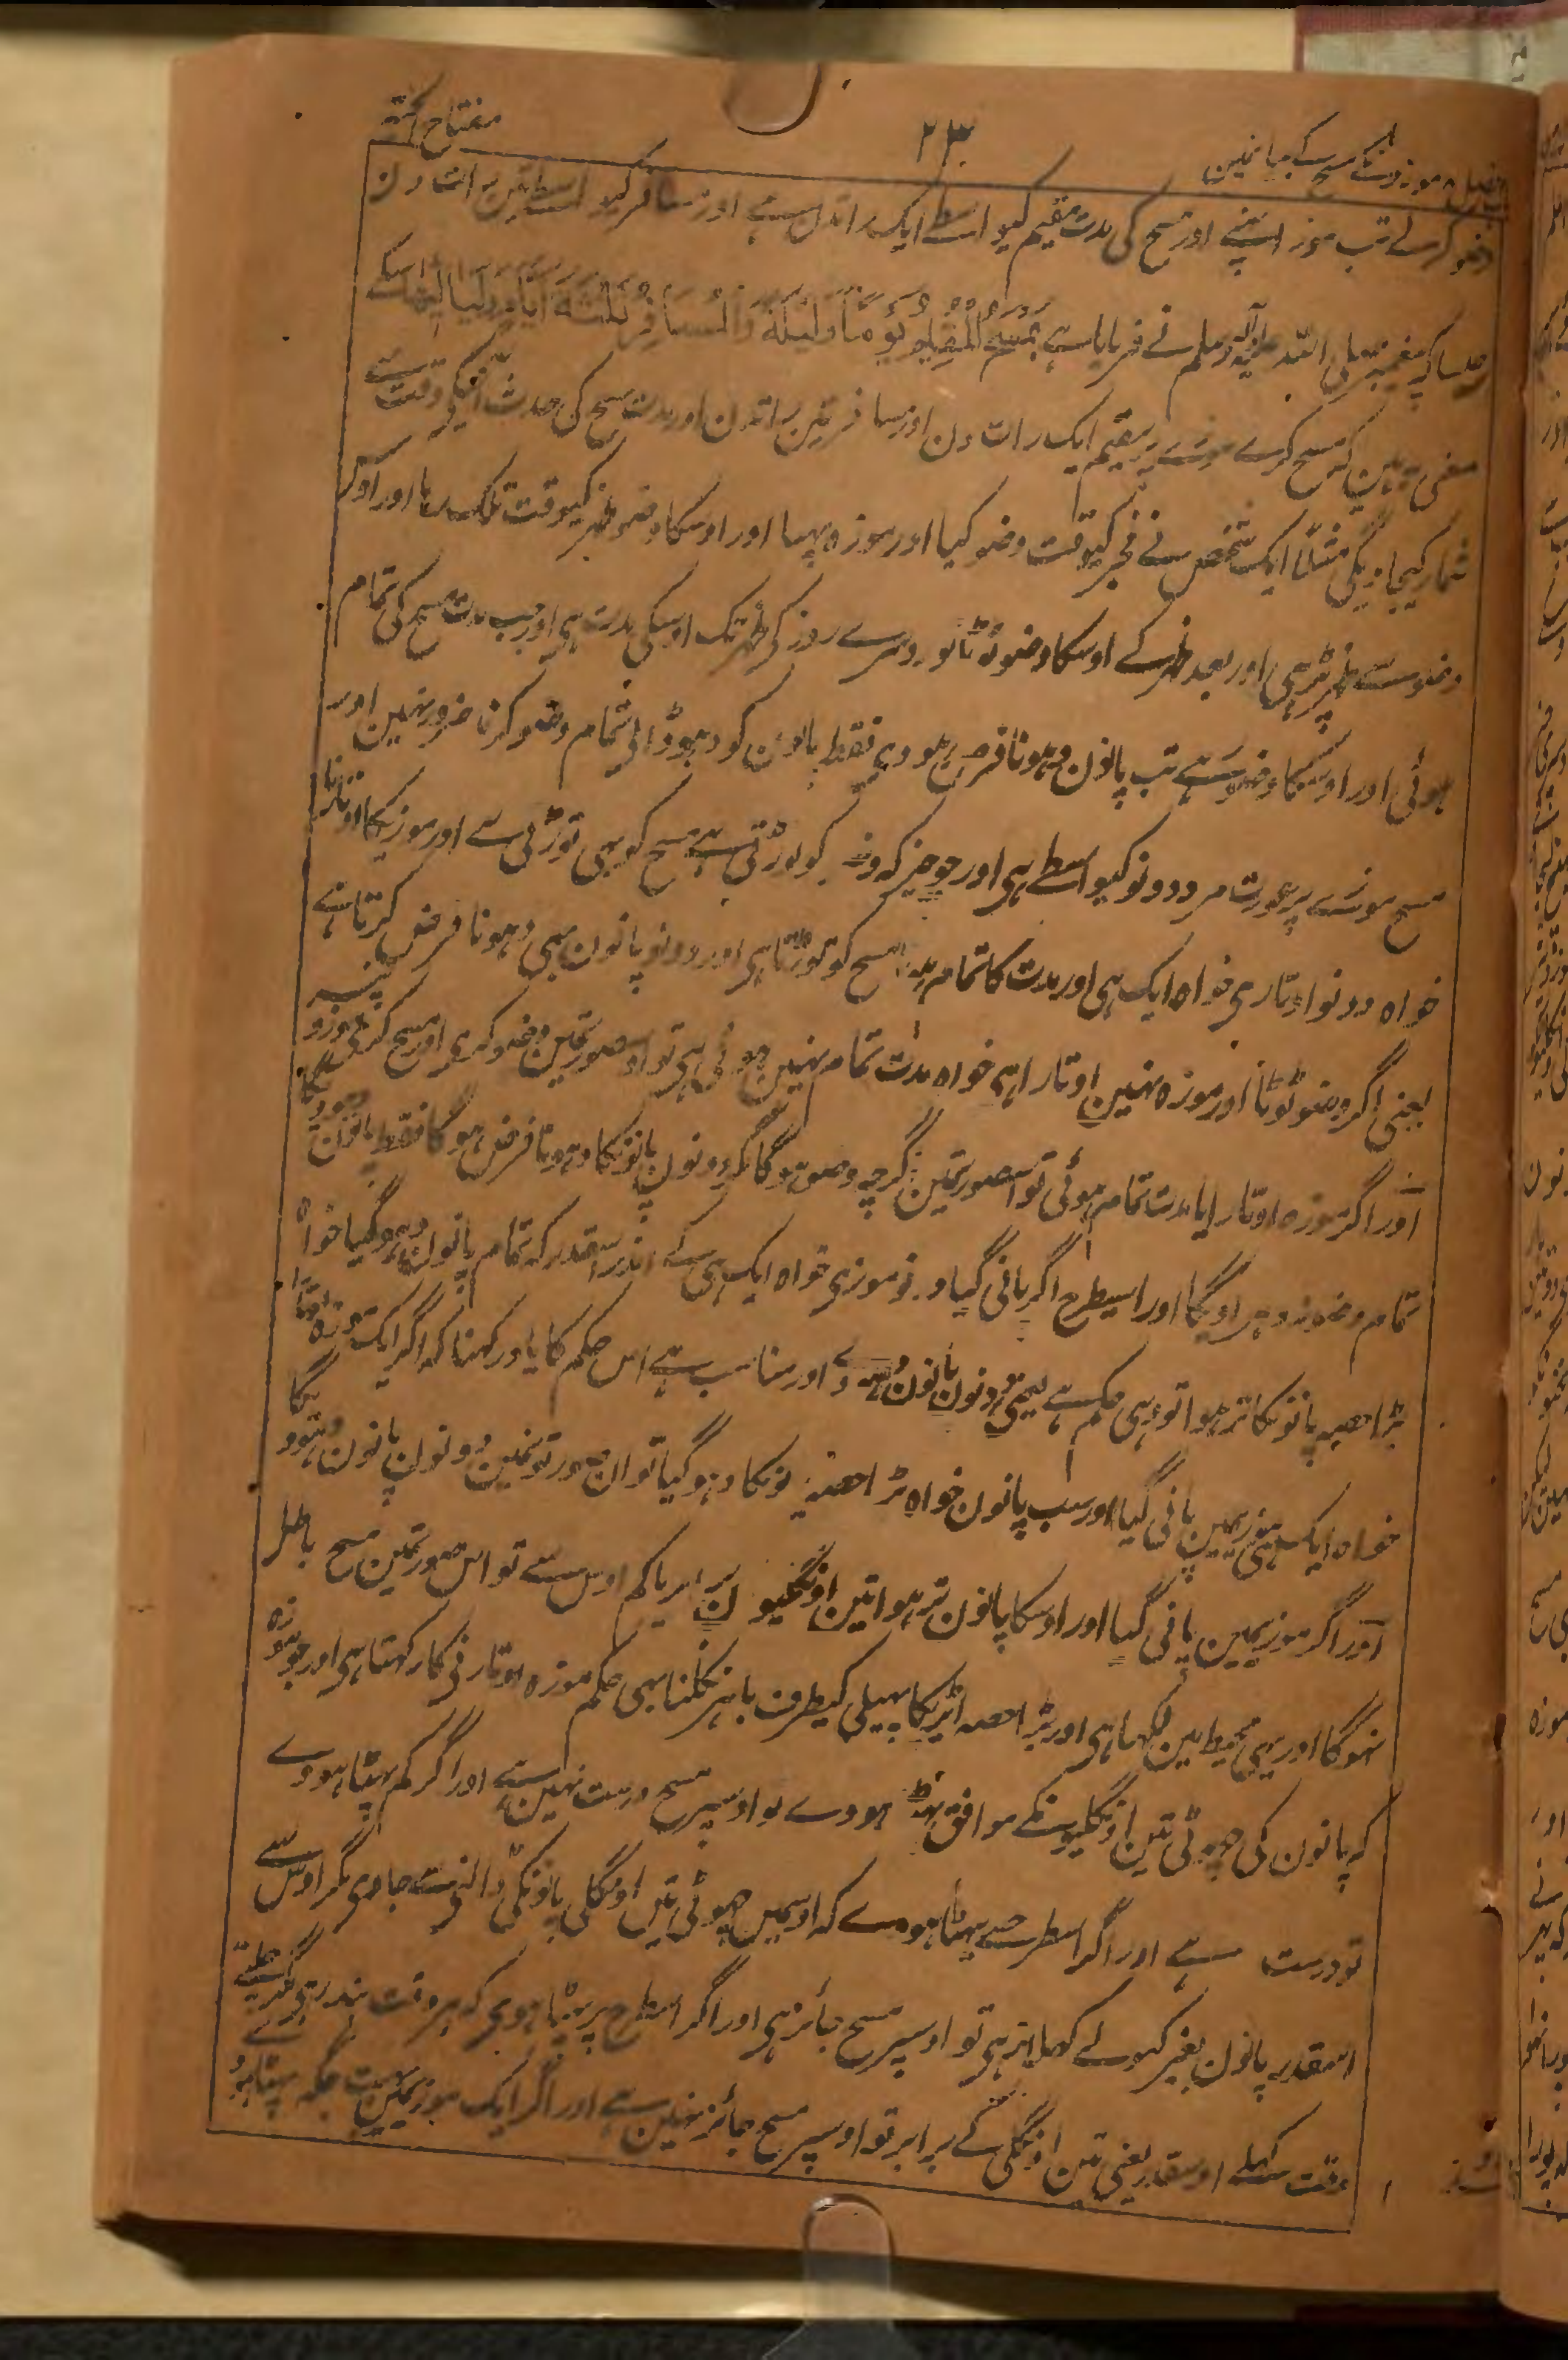 فصل موزونکے مسح کے بیانمین
۲۳
مفتاح الجنة
وضو کرلے تب موزہ پہنے اور مسح کی مدت مقیم کیواسطے ایک راتدن ہے اور مسافر کیواسطے تین رات دن
جیسا کہ پیغمبر صلی اللہ علیہ وآلہ وسلم نے فرمایا ہے یَمْسَحُ الْمُقِیْمُ یَوْمًا وَّلَیْلَةً وَالْمُسَافِرُ ثَلٰثَةَ اَیَّامٍ وَلَیَالِیْهَا اسکے
معنی یہ ہین کہ مسح کرے موزے پر مقیم ایک رات دن اور مسافر تین راتدن اور مدت مسح کی حدث کی وقت سے
شمار کیجاویگی مثلاً ایک شخص نے فجر کیوقت وضو کیا اور موزہ پہنا اور اوسکا وضو ظہر کیوقت تلک رہا اور اوس
وضو سے ظہر پڑہی اور بعد ظہر کے اوسکا وضو ٹوٹا تو دوسرے روز کی ظہر تک اوسکی مدت ہی اور جب مدت مسح کی تمام
ہوئی اور اوسکا وضو ہے تب پانون دہونا فرض ہودی فقط پانون کو دہو ڈالی تمام وضو کرنا ضرور نہین اور
مسح موزے پر عورت مرد دونو کیواسطے ہی اور جو چیز کہ وضو کو توڑتی ہے مسح کو بہی توڑتی ہے اور موزیکا اوتارنا
خواہ دونو اوتاری خواہ ایک ہی اور مدت کا تمام ہونا مسح کو توڑتا ہی اور دونو پانون بہی دہونا فرض کرتا ہے
یعنی اگر وضو ٹوٹا اور موزہ نہین اوتارا ہی خواہ مدت تمام نہین ہوئی ہی تو اس صورتمین وضو کری اور مسح کری موزونپر
اور اگر موزہ اوتارا یا مدت تمام ہوئی تو اس صورتمین اگرچہ وضو ہوگا مگر دونون پانونکا دہونا فرض ہوگا فقط پانون دہوویگا
تمام وضو نہ دہراویگا اور اسیطرح اگر پانی گیا دونو موزی خواہ ایک ہی کے اندر اسقدر کہ تمام پانون دہوگیا خواہ
بڑا حصہ پانونکا تر ہوا تو بہی حکم ہے یعنی دونون پانون دہووے اور مناسب ہے اس حکم کا یاد رکہنا کہ اگر ایک موزہ اوتارا
خواہ ایک ہی موزیمین پانی گیا اور سب پانون خواہ بڑا حصہ پانونکا دہوگیا تو ان صورتونمین دونون پانون دہوویگا
اور اگر موزیمین پانی گیا اور اوسکا پانون تر ہوا تین اونگلیون برابر یا کم اوس سے تو اس صورتمین مسح باطل
نہوگا اور یہی محیط مین لکہا ہی اور بڑا حصہ ایڑیکا پہلی کیطرف باہر نکلنا بہی حکم موزہ اوتارنی کا رکہتا ہی اور جو موزہ
کہ پانون کی چہوٹی تین اونگلیونکے موافق پہٹا ہووے تو اوسپر مسح درست نہین ہے اور اگر کم پہٹا ہووے
تو درست ہے اور اگر اسطرحسے پہٹا ہووے کہ اوسمین چہوٹی تین اونگلی پانونکی ڈالنی سے جاوی مگر اوس سے
اسقدر پانون بغیر کہولے کہلتا نہ ہی تو اوسپر مسح جائز ہی اور اگر اسطرح پر پہٹا ہوی کہ ہر وقت بند رہی مگر چلتے
وقت کہلے اوسقدر یعنی تین اونگلی کے برابر تو اوسپر مسح جائز نہین ہے اور اگر ایک موزیمین بہت جگہ پہٹا ہو